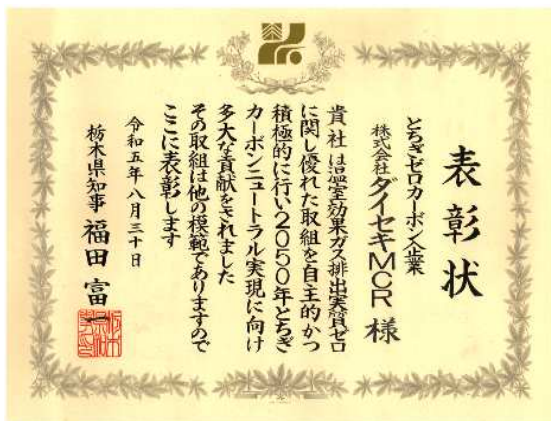 表彰状
とちぎゼロカーボン企業
株式会社ダイセキMCR 様
貴社は温室効果ガス排出実質ゼロ
に関し優れた取組を自主的かつ
積極的に行い2050年とちぎ
カーボンニュートラル実現に向け
多大な貢献をされました
その取組は他の模範でありますので
ここに表彰します
令和五年八月三十日
栃木県知事 福田富一